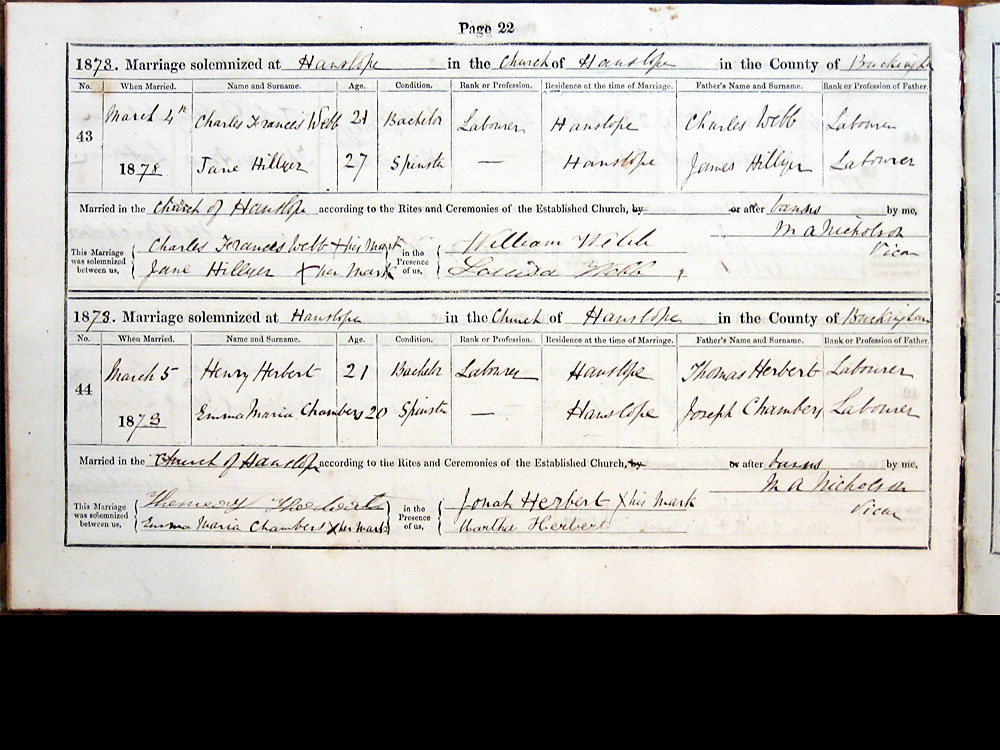 Page 22
1873. Marriage solemnized at Hanslope in the Church of Hanslope in the County of Buckingham
No. When Married. Name and Surname. Age. Condition. Rank or Profession. Residence at the time of Marriage. Father's Name and Surname. Rank or Profession of Father.
43 March 4th Charles Francis Webb 21 Bachelor Labourer Hanslope Charles Webb Labourer
1873 Jane Hillyer 27 Spinster — Hanslope James Hillyer Labourer
Married in the Church of Hanslope according to the Rites and Ceremonies of the Established Church, by or after banns by me,
M A Nicholson
Vicar
This Marriage was solemnized between us, Charles Francis Webb + his Mark in the Presence of us, William Webb
Jane Hillyer X her Mark Webb
1873. Marriage solemnized at Hanslope in the Church of Hanslope in the County of Buckingham
No. When Married. Name and Surname. Age. Condition. Rank or Profession. Residence at the time of Marriage. Father's Name and Surname. Rank or Profession of Father.
44 March 5 Henry Herbert 21 Bachelor Labourer Hanslope Thomas Herbert Labourer
1873 Emma Maria Chambers 20 Spinster — Hanslope Joseph Chambers Labourer
Married in the Church of Hanslope according to the Rites and Ceremonies of the Established Church, by or after banns by me,
M A Nicholson
Vicar
This Marriage was solemnized between us, in the Presence of us, Jonah Herbert X his Mark
Emma Maria Chambers X her mark Martha Herbert